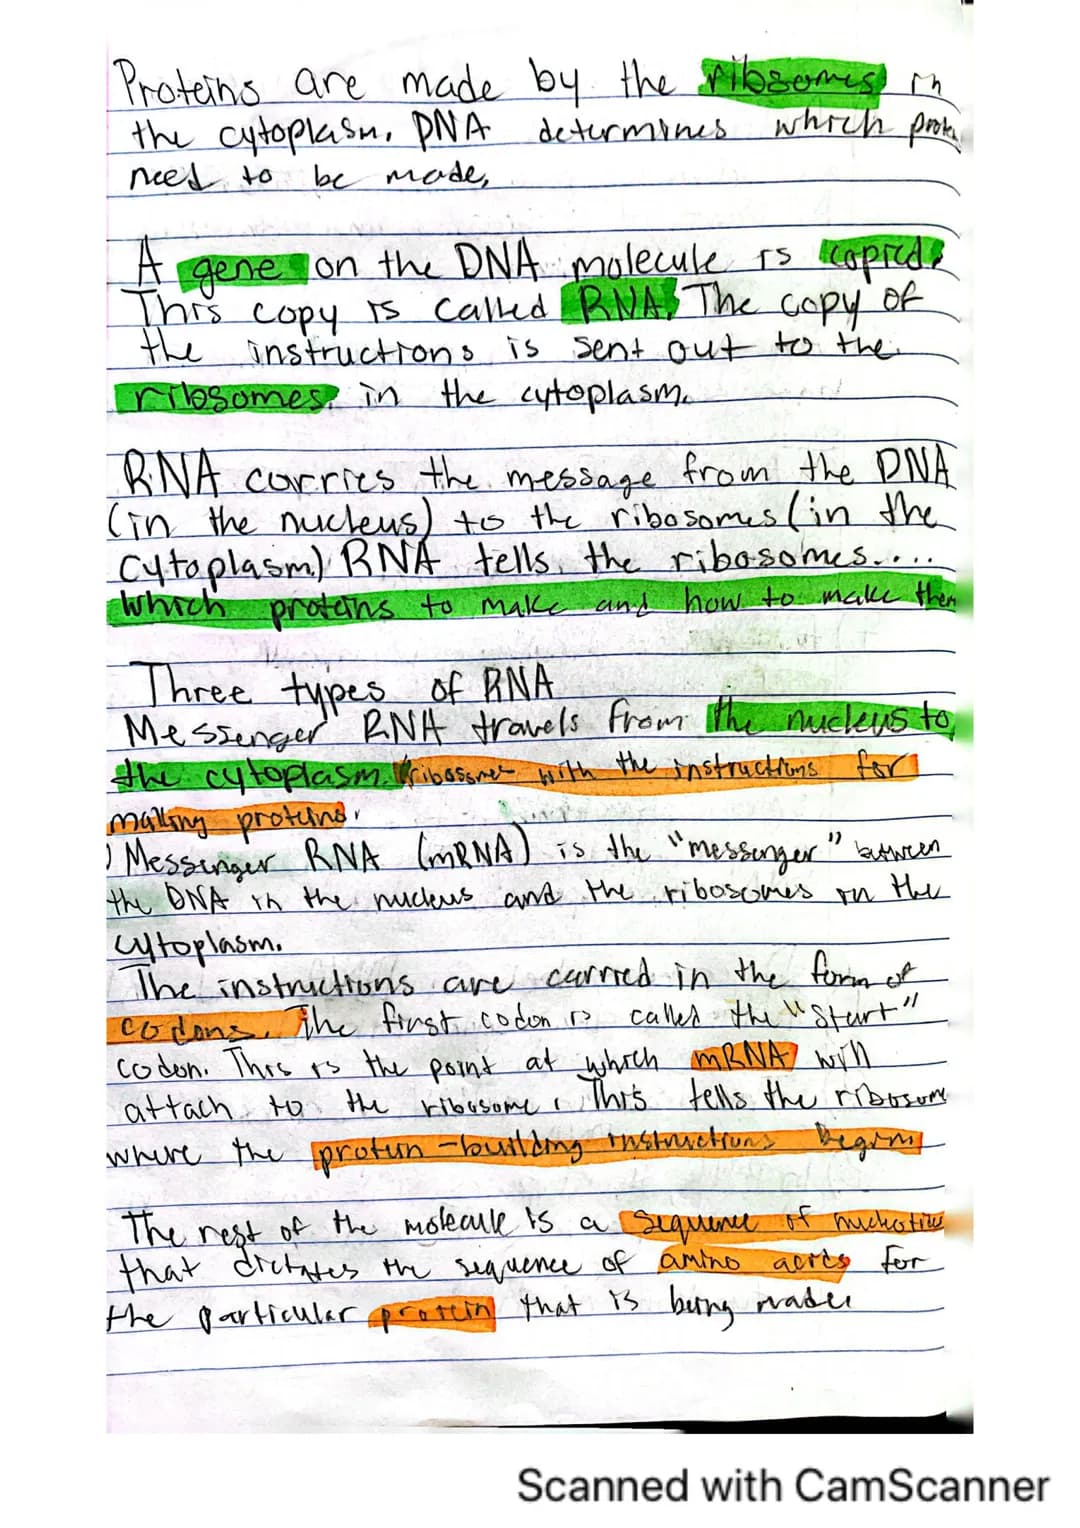 Proteins are made by the ribsomes in
the cytoplasm. DNA determines which
need to be made,
A gene on the DNA molecule is copied.
This copy is called RNA. The copy of
the instructions is sent out to the
ribsomes. in the cytoplasm.
RNA carries the message from the DNA
(in the nucleus) to the ribosomes (in the
cytoplasm) RNA tells the ribosomes.....
which proteins to make and how to make them
Three types of RNA
Messenger RNA travels from the nucleus to
the cytoplasm. with the instructions for
making proteins.
Messenger RNA (mRNA) is the "messenger" between
the DNA in the nucleus and the ribosomes in the
cytoplasm.
The instructions are carried in the form of
codons. The first codon is called the "Start"
codon. This is the point at which mRNA will
attach to the ribosome. This tells the ribosome
where the protein-building instructions begins
The rest of the molecule is a sequence of
that dictates the sequence of amino acids for
the particular protein that is being made.
Scanned with CamScanner